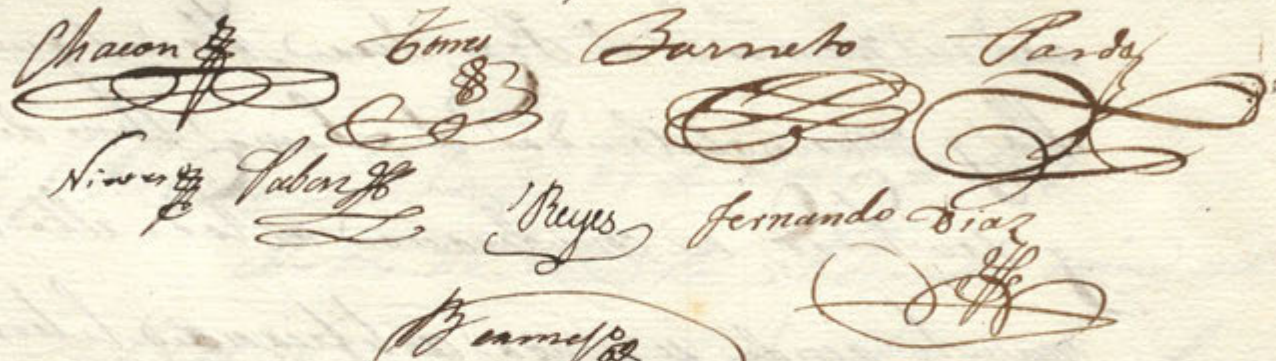 Chacon Torres Barreto Pardo
Nieves Pabon Reyes Fernando Diaz